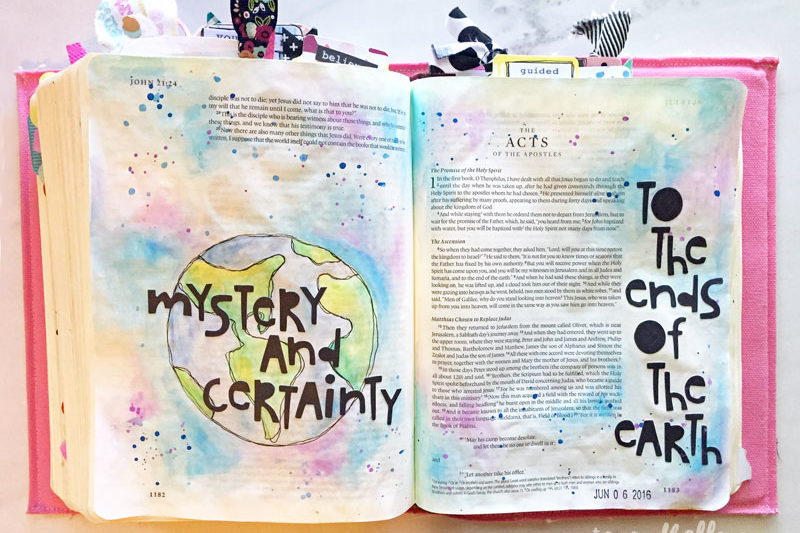 believ
guided
JOHN 21:24
disciple was not to die; yet Jesus did not say to him that he was not to die, but, "If it is
my will that he remain until I come, what is that to you?"
24 This is the disciple who is bearing witness about these things, and who
these things, and we know that his testimony is true.
25 Now there are also many other things that Jesus did. Were every one of
written, I suppose that the world itself could not contain the books that would be
MYSTERY
AND
CERTAINTY
1182
THE
ACTS
OF THE APOSTLES
The Promise of the Holy Spirit
1 In the first book, O Theophilus, I have dealt with all that Jesus began to do and teach,
2 until the day when he was taken up, after he had given commands through the
Holy Spirit to the apostles whom he had chosen. 3 He presented himself alive
after his suffering by many proofs, appearing to them during forty days and speaking
about the kingdom of God.
4 And while staying with them he ordered them not to depart from Jerusalem, but to
wait for the promise of the Father, which, he said, "you heard from me; 5 for John baptized
with water, but you will be baptized with the Holy Spirit not many days from now."
The Ascension
6 So when they had come together, they asked him, "Lord, will you at this time restore
the kingdom to Israel?" 7 He said to them, "It is not for you to know times or seasons that
the Father has fixed by his own authority. 8 But you will receive power when the Holy
Spirit has come upon you, and you will be my witnesses in Jerusalem and in all Judea and
Samaria, and to the end of the earth." 9 And when he had said these things, as they were
looking on, he was lifted up, and a cloud took him out of their sight. 10 And while they
were gazing into heaven as he went, behold, two men stood by them in white robes, 11 and
said, "Men of Galilee, why do you stand looking into heaven? This Jesus, who was taken
up from you into heaven, will come in the same way as you saw him go into heaven."
Matthias Chosen to Replace Judas
12 Then they returned to Jerusalem from the mount called Olivet, which is near
Jerusalem, a Sabbath day's journey away. 13 And when they had entered, they went up to
the upper room, where they were staying, Peter and John and James and Andrew, Philip
and Thomas, Bartholomew and Matthew, James the son of Alphaeus and Simon the
Zealot and Judas the son of James. 14 All these with one accord were devoting themselves
to prayer, together with the women and Mary the mother of Jesus, and his brothers.
15 In those days Peter stood up among the brothers (the company of persons was in
all about 120) and said, 16 "Brothers, the Scripture had to be fulfilled, which the Holy
Spirit spoke beforehand by the mouth of David concerning Judas, who became a guide
to those who arrested Jesus. 17 For he was numbered among us and was allotted his
share in this ministry." 18 (Now this man acquired a field with the reward of his wick-
edness, and falling headlong he burst open in the middle and all his bowels gushed
out. 19 And it became known to all the inhabitants of Jerusalem, so that the field was
called in their own language Akeldama, that is, Field of Blood.) 20 "For it is written in
the Book of Psalms,
"'May his camp become desolate,
and let there be no one to dwell in it';
and
"'Let another take his office.'
TO
THE
ENDS
OF
THE
EARTH
JUN 06 2016
1183